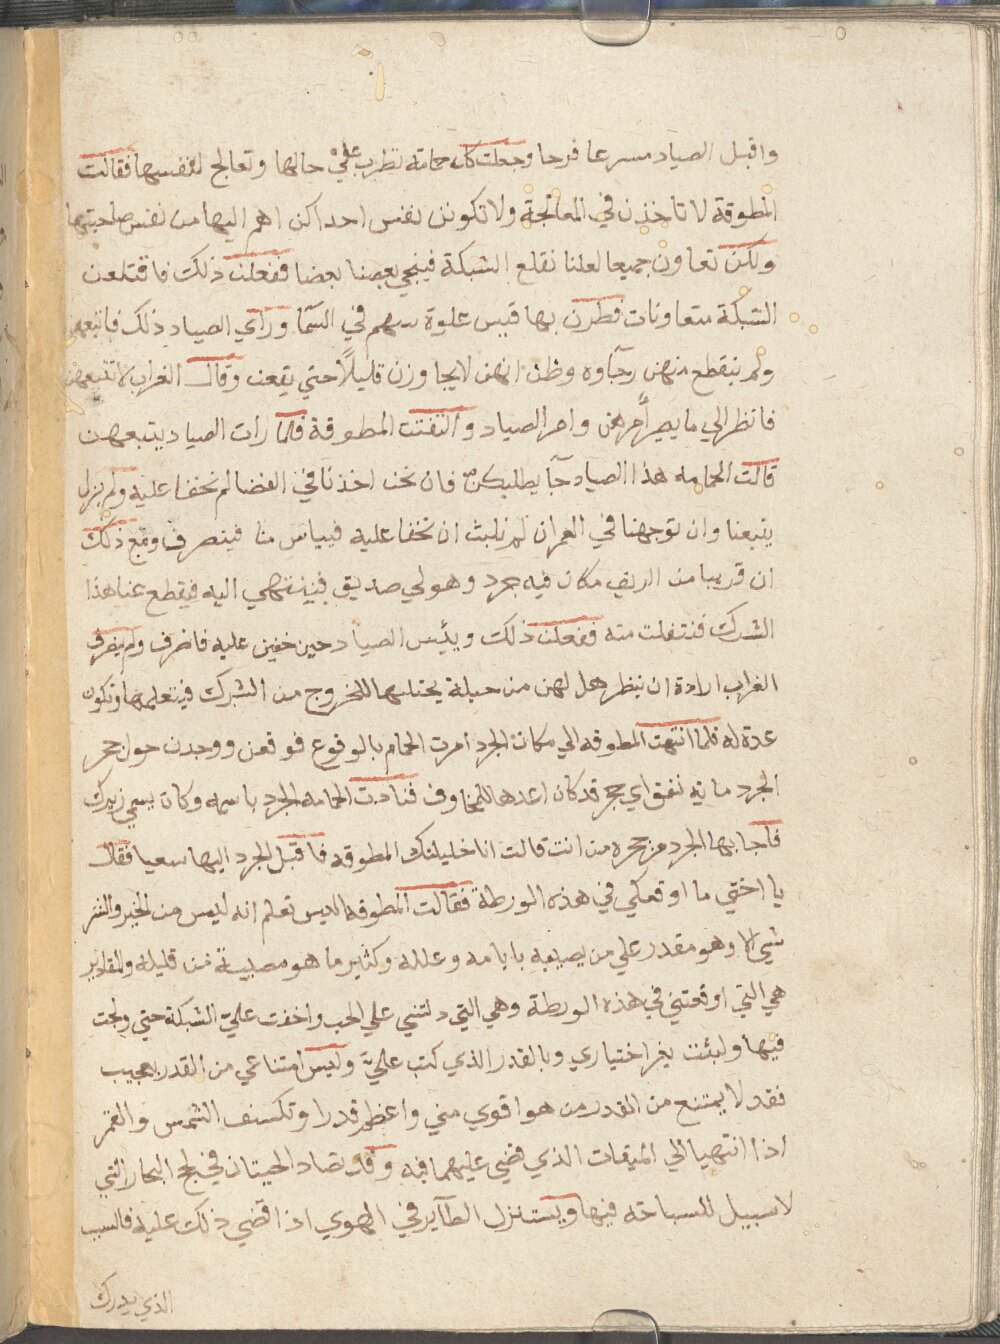 واقبل الصياد مسرعا فرحا وجعلت كل حمامة تظرب علي حالها وتعالج لنفسها فقالت
المطوقة لا تاخذن في المعالجة ولا تكونن نفس احداكن اهم اليها من نفس صاحبتها
ولكن تعاون جميعا لعلنا نقلع الشبكة فينجي بعضنا بعضا ففعلن ذلك فاقتلعن
الشبكة متعاونات فطرن بها قيس علوة سهم في السما وراي الصياد ذلك فاتبعهن
ولم ينقطع منهن رجاوه وظن انهن لا يجاوزن قليلا حتي يقعن وقال الغراب لاتتبعهن
فانظر الي ما يصير امرهن وامر الصياد والتفتت المطوقة فلما رات الصياد يتبعهن
قالت الحمامه هذا الصياد جآ يطلبكن فان نحن اخذنا في الفضا لم نخفا عليه ولم يزل
يتبعنا وان توجهنا في العمران لم نلبث ان نخفا عليه فيياس منا فينصرف ومع ذلك
ان قريبا من الريف مكان فيه جرد وهو لي صديق فينتهي اليه فيقطع عنا هذا
الشرك فنتفلت منه ففعلن ذلك ويئس الصياد حين خفين عليه فانصرف ولم ينصرف
الغراب ارادة ان ينظر هل لهن من حيلة يحتلبها للخروج من الشرك فيتعلمها وتكون
عدة له فلما انتهت المطوقه الي مكان الجرد امرت الحمام بالوقوع فوقعن ووجدن حول جحر
الجرد ماية نفق اي جحر قد كان اعدها للمخاوف فنادت الحمامه الجرد باسمه وكان يسمي زيرك
فاجابها الجرد من جحره من انت قالت انا خليلتك المطوقه فاقبل الجرد اليها سعيا فقال
يا اختي ما اوقعكي في هذه الورطة فقالت المطوقه اليس تعلم انه ليس من الخير والشر
شيء الا وهو مقدر علي من يصيبه بايامه وعلله وكثير ما هو مصيبة من قليله والمقادير
هي التي اوقعتني في هذه الورطة وهي التي دلتني علي الحب واخفت علي الشبكة حتي ولجت
فيها ولبئت بغير اختياري وبالقدر الذي كتب علي وليس امتناعي من القدر بعجيب
فقد لا يمتنع من القدر من هو اقوي مني واعظم قدرا وتكسف الشمس والقمر
اذا انتهيا الي الميقات الذي قضي عليهما فيه وقد تصاد الحيتان في لج البحار التي
لا سبيل للسباحة فيها ويستنزل الطآير في الهوي اذا قضي ذلك عليه فالسبب
الذي يدرك